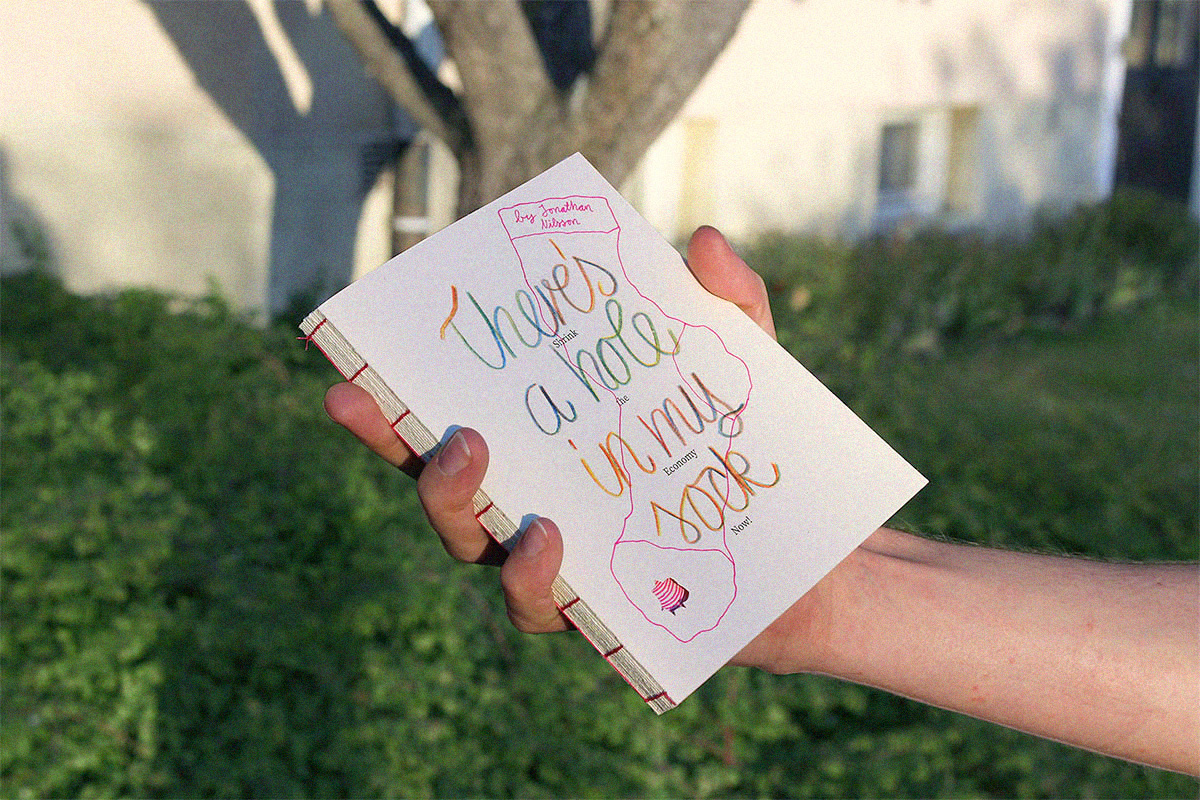 by Jonathan
Nilsson
There's
Shrink
a hole
the
in my
Economy
sock
Now!